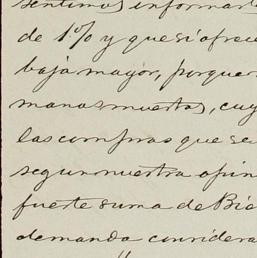 sentimos informarle
de 1% y que si ofrece
baja mayor, porque
manos muertas, cuy
las compras que se
segun nuestra opin
fuerte suma de Bi
demanda considera